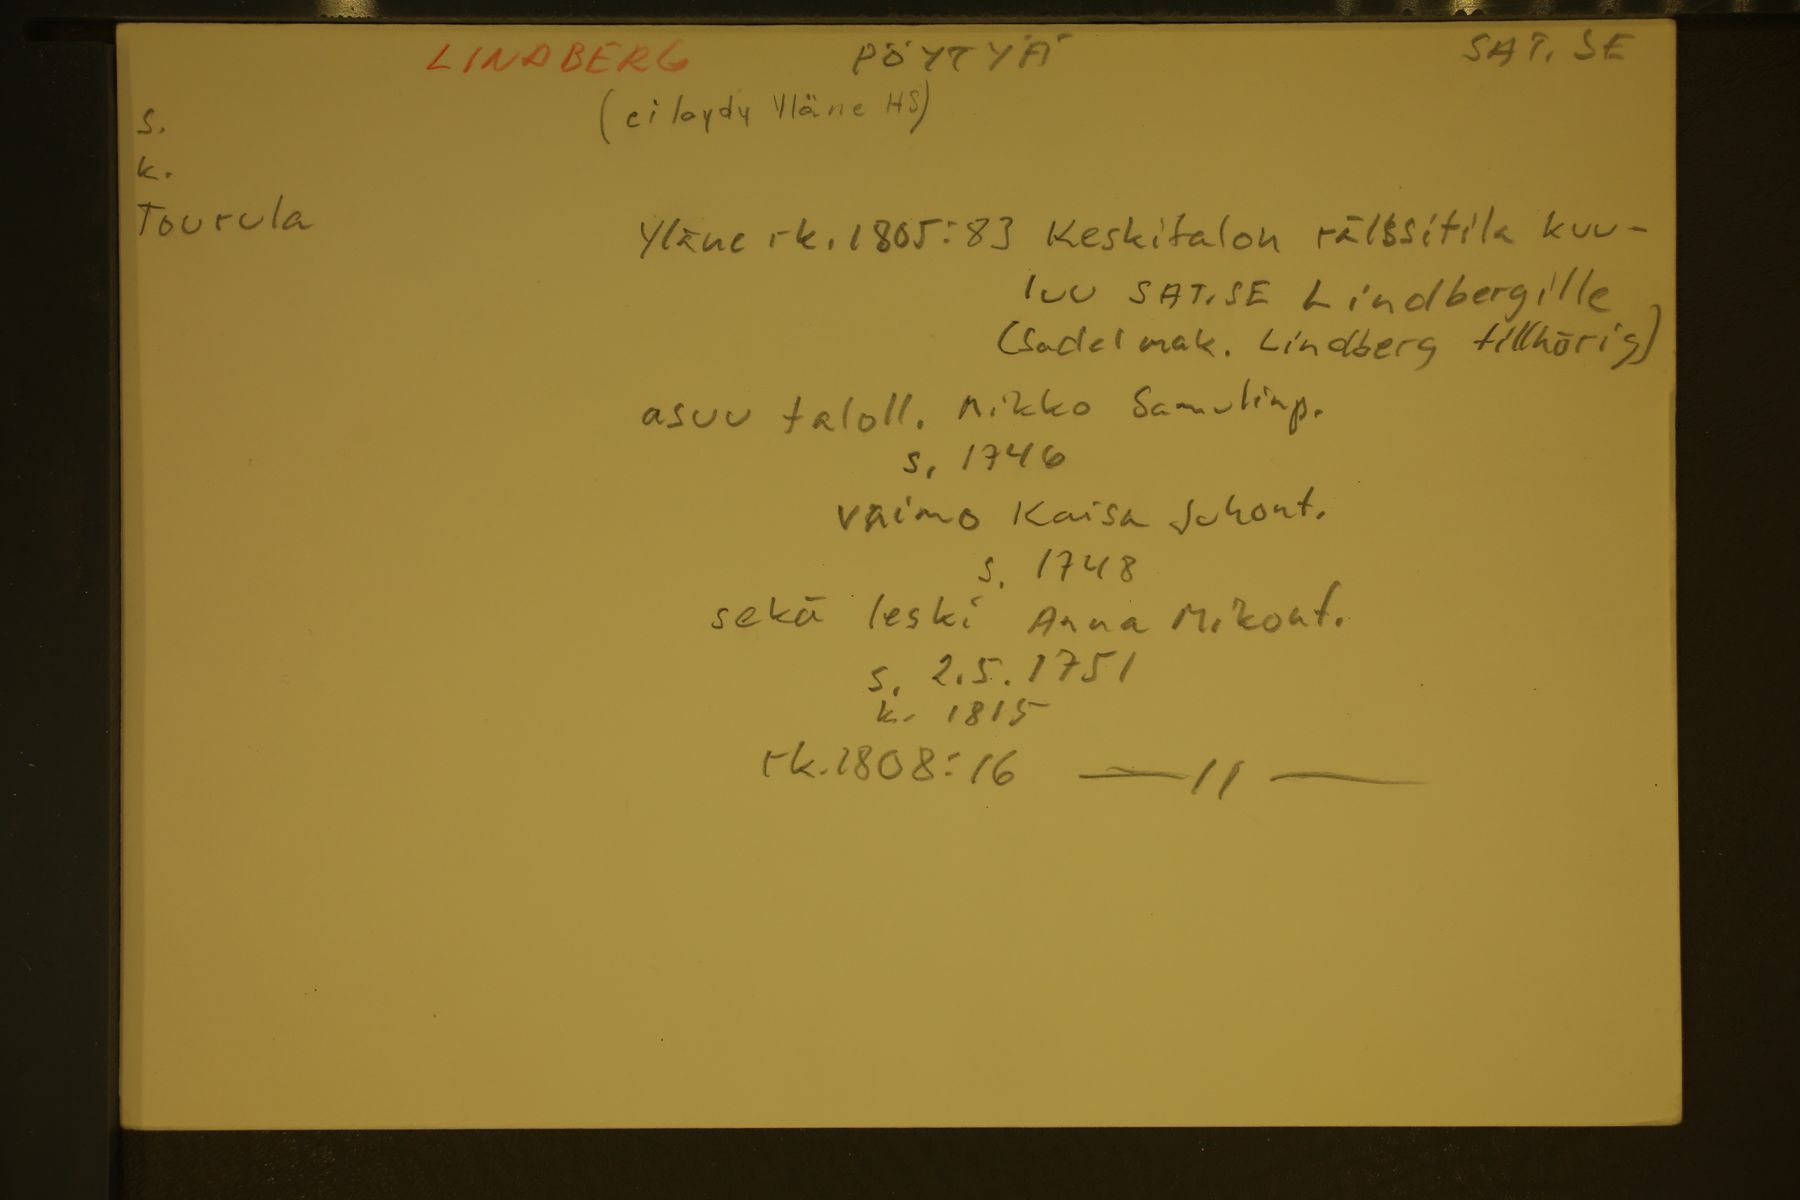 LINDBERG PÖYTYÄ SAT.SE
(ei löydy Yläne HS)
s.
k.
Tourula
Yläne rk. 1805:83 Keskitalon rälssitila kuu-
luu SAT.SE Lindbergille
(Sadelmak. Lindberg tillhörig)
asuu taloll. Mikko Samulinp.
s. 1746
vaimo Kaisa Juhont.
s. 1748
sekä leski Anna Mikont.
s. 2.5.1751
k. 1815
rk. 1808:16 —— 11 ——